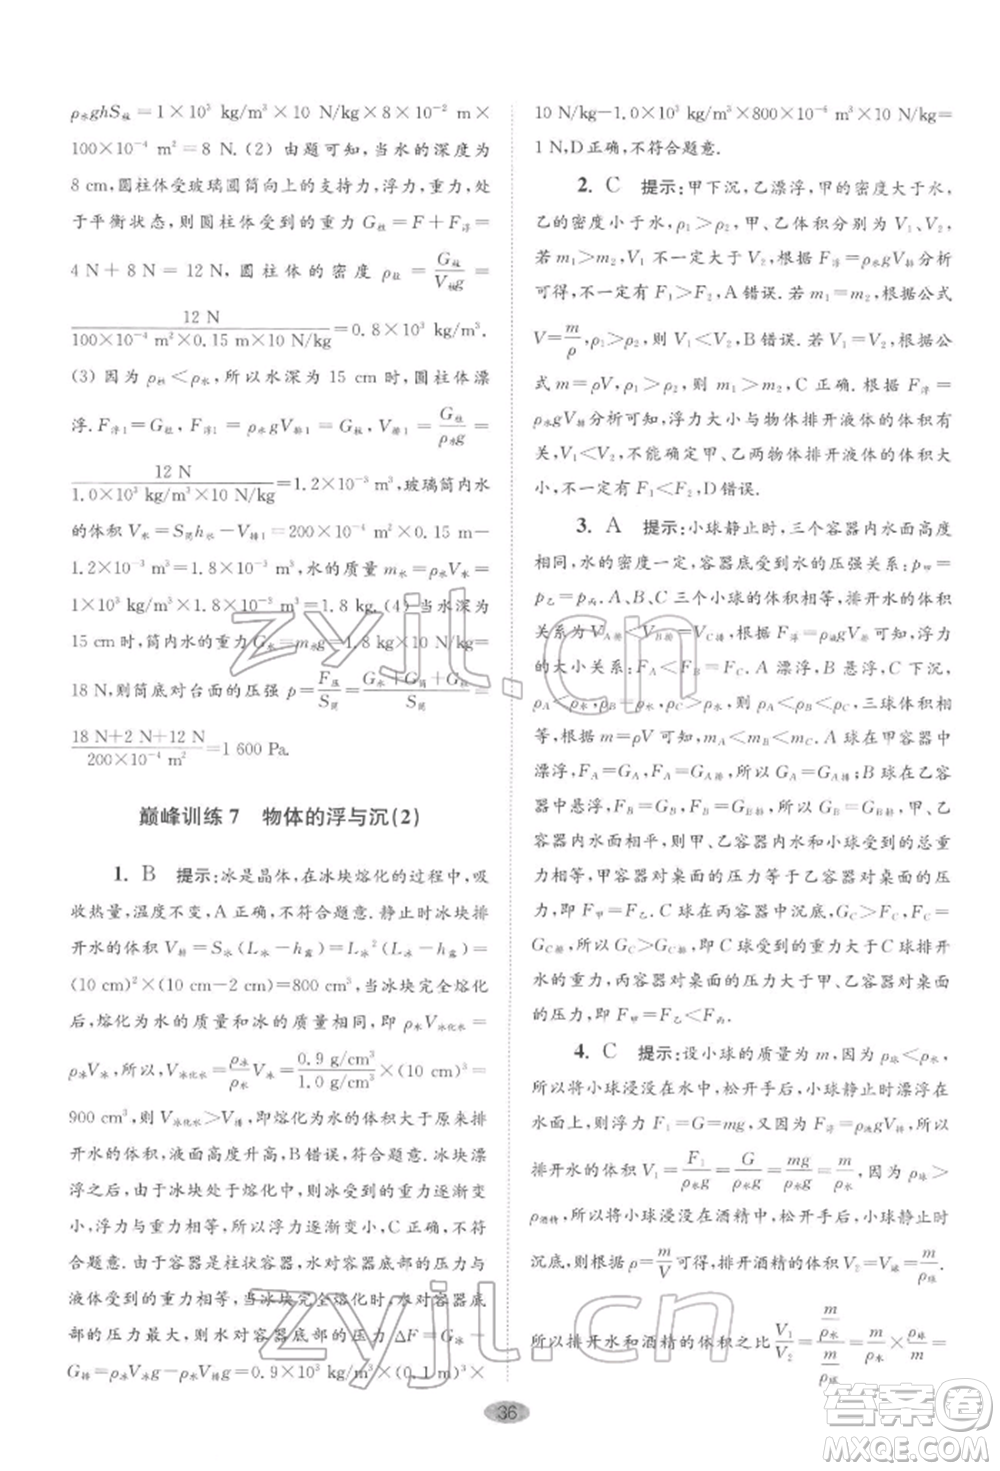 ρ水ghS柱=1×10³ kg/m³×10 N/kg×8×10⁻² m×
100×10⁻⁴ m²=8 N. (2) 由题可知,当水的深度为
8 cm,圆柱体受玻璃圆筒向上的支持力,浮力,重力,处
于平衡状态,则圆柱体受到的重力 G柱=F+F浮=
4 N+8 N=12 N,圆柱体的密度 ρ柱=G柱/V柱g=
12 N/(100×10⁻⁴ m²×0.15 m×10 N/kg)=0.8×10³ kg/m³.
(3) 因为 ρ柱<ρ水,所以水深为 15 cm 时,圆柱体漂
浮. F浮1=G柱,F浮1=ρ水gV排1=G柱,V排1=G柱/ρ水g=
12 N/(1.0×10³ kg/m³×10 N/kg)=1.2×10⁻³ m³,玻璃筒内水
的体积 V水=S筒h水-V排1=200×10⁻⁴ m²×0.15 m-
1.2×10⁻³ m³=1.8×10⁻³ m³,水的质量 m水=ρ水V水=
1.0×10³ kg/m³×1.8×10⁻³ m³=1.8 kg. (4) 当水深为
15 cm时,筒内水的重力 G水=m水g=1.8 kg×10 N/kg=
18 N,则筒底对台面的压强 p=F压/S筒=(G水+G筒+G柱)/S筒=
(18 N+2 N+12 N)/(200×10⁻⁴ m²)=1 600 Pa.
巅峰训练 7 物体的浮与沉(2)
1. B 提示:冰是晶体,在冰块熔化的过程中,吸
收热量,温度不变,A 正确,不符合题意.静止时冰块排
开水的体积 V排=S冰(L冰-h露)=L冰²(L冰-h露)=
(10 cm)²×(10 cm-2 cm)=800 cm³,当冰块完全熔化
后,熔化为水的质量和冰的质量相同,即 ρ水V冰化水=
ρ冰V冰,V冰化水=ρ冰/ρ水 V冰=(0.9 g/cm³)/(1.0 g/cm³)×(10 cm)³=
900 cm³,则 V冰化水>V排,即熔化为水的体积大于原来排
开水的体积,液面高度升高,B 错误,符合题意.冰块漂
浮之后,由于冰块处于熔化中,则冰块的重力逐渐变
小,浮力与重力相等,所以浮力逐渐变小,C 正确,不符
合题意.由于容器是柱状容器,水对容器底部的压力与
液体重力相等,当冰块完全熔化时,水对容器底
部的压力最大,则水对容器底部的压力 ΔF=G冰-
G排=ρ冰V冰g-ρ水V排g=0.9×10³ kg/m³×(0.1 m)³×
10 N/kg-1.0×10³ kg/m³×800×10⁻⁶ m³×10 N/kg=
1 N,D 正确,不符合题意.
2. C 提示:甲下沉,乙漂浮,甲的密度大于水,
乙的密度小于水,ρ1>ρ2,甲、乙体积分别为 V1、V2,
若 m1>m2,V1 不一定大于 V2,根据 F浮=ρ水gV排分析
可得,不一定有 F1>F2,A 错误.若 m1=m2,根据公式
V=m/ρ,ρ1>ρ2,则 V1<V2,B错误.若 V1=V2,根据公
式 m=ρV,ρ1>ρ2,则 m1>m2,C 正确.根据 F浮=
ρ水gV排分析可知,浮力大小与物体排开液体的体积有
关,V1<V2,不能确定甲、乙两物体排开液体的体积大
小,不一定有 F1<F2,D 错误.
3. A 提示:小球静止时,三个容器内水面高度
相同,水的密度一定,容器底受到水的压强关系:p甲=
p乙=p丙;A、B、C 三个小球的体积相等,排开水的体积
关系为 VA排<VB排=VC排,根据 F浮=ρ液gV排可知,浮力
的大小关系:FA<FB=FC. A 漂浮,B 悬浮,C 下沉,
则 ρA<ρ水,ρB=ρ水,ρC>ρ水,所以 ρA<ρB<ρC,三球体积相
等,根据 m=ρV 可知 mA<mB<mC;A 球在甲容器中
漂浮,FA=GA=GA排,所以 GA=GA排;因为 B 球在乙容
器中悬浮,FB=GB=GB排,所以 GB=GB排,甲容器和乙
容器内水面相平,所以甲、乙容器内水的总重力和小球
重力之和相等,甲容器对桌面的压力等于乙容器对桌面的压
力,即 F甲=F乙.因为 C 球在丙中沉底,GC>FC=
GC排,所以 GC>GC排,即 C 球受到的重力大于C球排开
水的重力,丙容器对桌面的压力大于甲、乙容器对桌面
的压力,则 F甲=F乙<F丙.
4. C 提示:设小球的质量为 m,因为 ρ球<ρ水,
所以将小球浸没在水中,松开手后,小球静止时漂浮在
水中,所以浮力 F1=G=mg,又因为 F浮=ρ液gV排,所以
排开水的体积 V1=F1/ρ水g=G/ρ水g=mg/ρ水g=m/ρ水,因为 ρ球>
ρ酒精,所以将小球浸没在酒精中,松开手后,小球静止时
沉底,则根据 ρ=m/V 可得,排开酒精的体积 V2=V球=m/ρ球,
所以排开水和酒精的体积之比 V1/V2=(m/ρ水)/(m/ρ球)=m/ρ水×ρ球/m=
36
zyjl.cn
zyjl.cn
答案圈
MXQE.COM